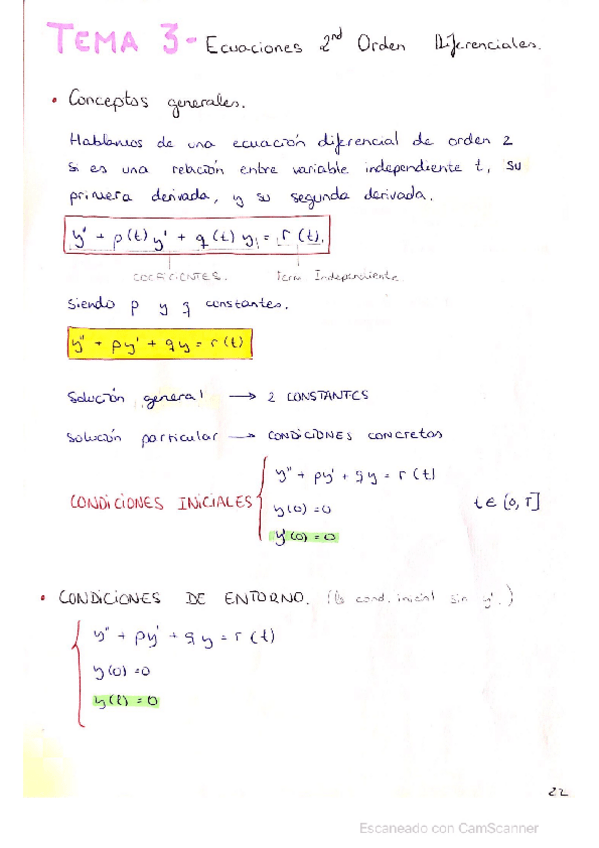 TEMA 3- Ecuaciones 2nd Orden Diferenciales.
• Conceptos generales.
Hablamos de una ecuación diferencial de orden 2
si es una relación entre variable independiente t, su
primera derivada, y su segunda derivada.
y" + p(t) y' + q(t) y = r(t).
COEFICIENTES. Term Independiente
Siendo p y q constantes.
y" + py' + qy = r(t)
Solución general → 2 CONSTANTES
Solución particular → CONDICIONES concretas
y" + py' + qy = r(t)
CONDICIONES INICIALES t ∈ [0, T]
y(0) = 0
y'(0) = 0
• CONDICIONES DE ENTORNO. (la cond. inicial sin y'.)
y" + py' + qy = r(t)
y(0) = 0
y(t) = 0
22
Escaneado con CamScanner